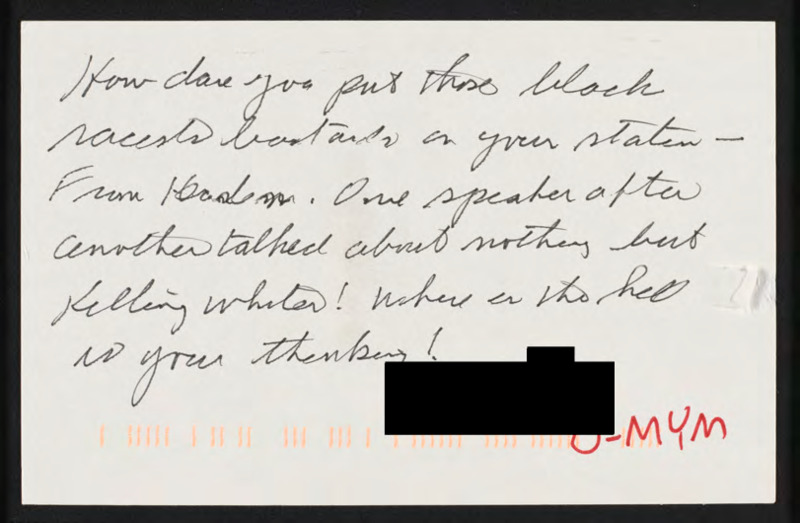 How dare you put those black
racests bastards on your station –
From Harlem. One speaker after
another talked about nothing but
Killing whites! Where in the hell
is your thinking!
-MYM